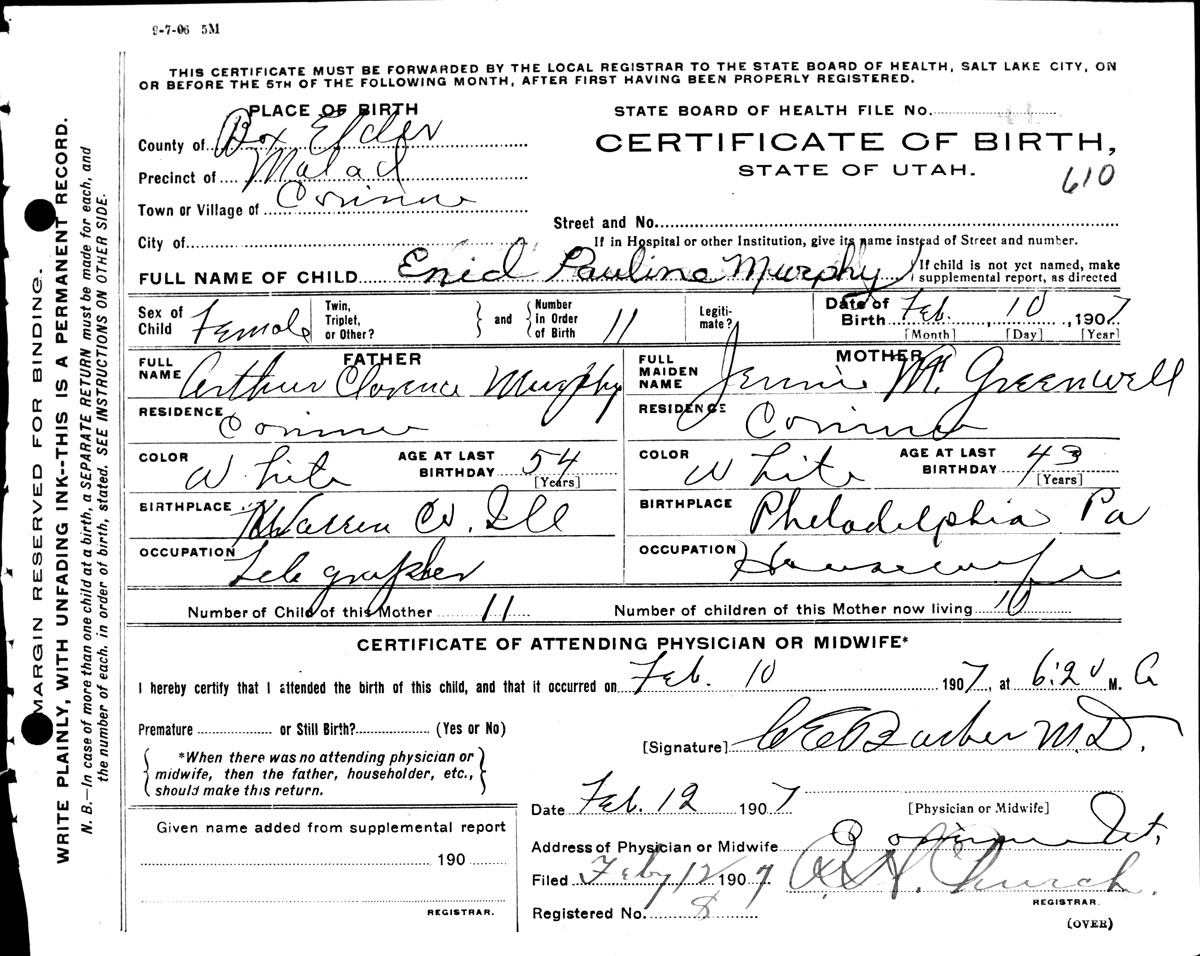 9-7-06 5M
THIS CERTIFICATE MUST BE FORWARDED BY THE LOCAL REGISTRAR TO THE STATE BOARD OF HEALTH, SALT LAKE CITY, ON
OR BEFORE THE 5TH OF THE FOLLOWING MONTH, AFTER FIRST HAVING BEEN PROPERLY REGISTERED.
PLACE OF BIRTH
County of Box Elder
Precinct of Malad
Town or Village of Corinne
City of
STATE BOARD OF HEALTH FILE No.
CERTIFICATE OF BIRTH,
STATE OF UTAH.
610
Street and No.
If in Hospital or other Institution, give its name instead of Street and number.
FULL NAME OF CHILD Enid Pauline Murphy
If child is not yet named, make
supplemental report, as directed
Sex of Child Female
Twin, Triplet, or Other?
and
Number in Order of Birth 11
Legiti-mate?
Date of Birth Feb. 10, 1907
[Month] [Day] [Year]
FATHER
FULL NAME Arthur Clarence Murphy
RESIDENCE Corinne
COLOR White AGE AT LAST BIRTHDAY 54
[Years]
BIRTHPLACE Warren Co. Ill
OCCUPATION Telegrapher
MOTHER
FULL MAIDEN NAME Jennie M. Greenwell
RESIDENCE Corinne
COLOR White AGE AT LAST BIRTHDAY 43
[Years]
BIRTHPLACE Philadelphia Pa
OCCUPATION Housewife
Number of Child of this Mother 11 Number of children of this Mother now living 10
CERTIFICATE OF ATTENDING PHYSICIAN OR MIDWIFE*
I hereby certify that I attended the birth of this child, and that it occurred on Feb. 10 1907, at 6:20 M. A
Premature or Still Birth? (Yes or No)
*When there was no attending physician or
midwife, then the father, householder, etc.,
should make this return.
[Signature] C E Barber M.D.
Date Feb. 12 1907
[Physician or Midwife]
Given name added from supplemental report
190
REGISTRAR.
Address of Physician or Midwife Corinne Ut.
Filed Feby 12 1907 Church.
REGISTRAR.
Registered No. 8
(OVER)
MARGIN RESERVED FOR BINDING.
WRITE PLAINLY, WITH UNFADING INK--THIS IS A PERMANENT RECORD.
N. B.—In case of more than one child at a birth, a SEPARATE RETURN must be made for each, and
the number of each, in order of birth, stated. SEE INSTRUCTIONS ON OTHER SIDE.